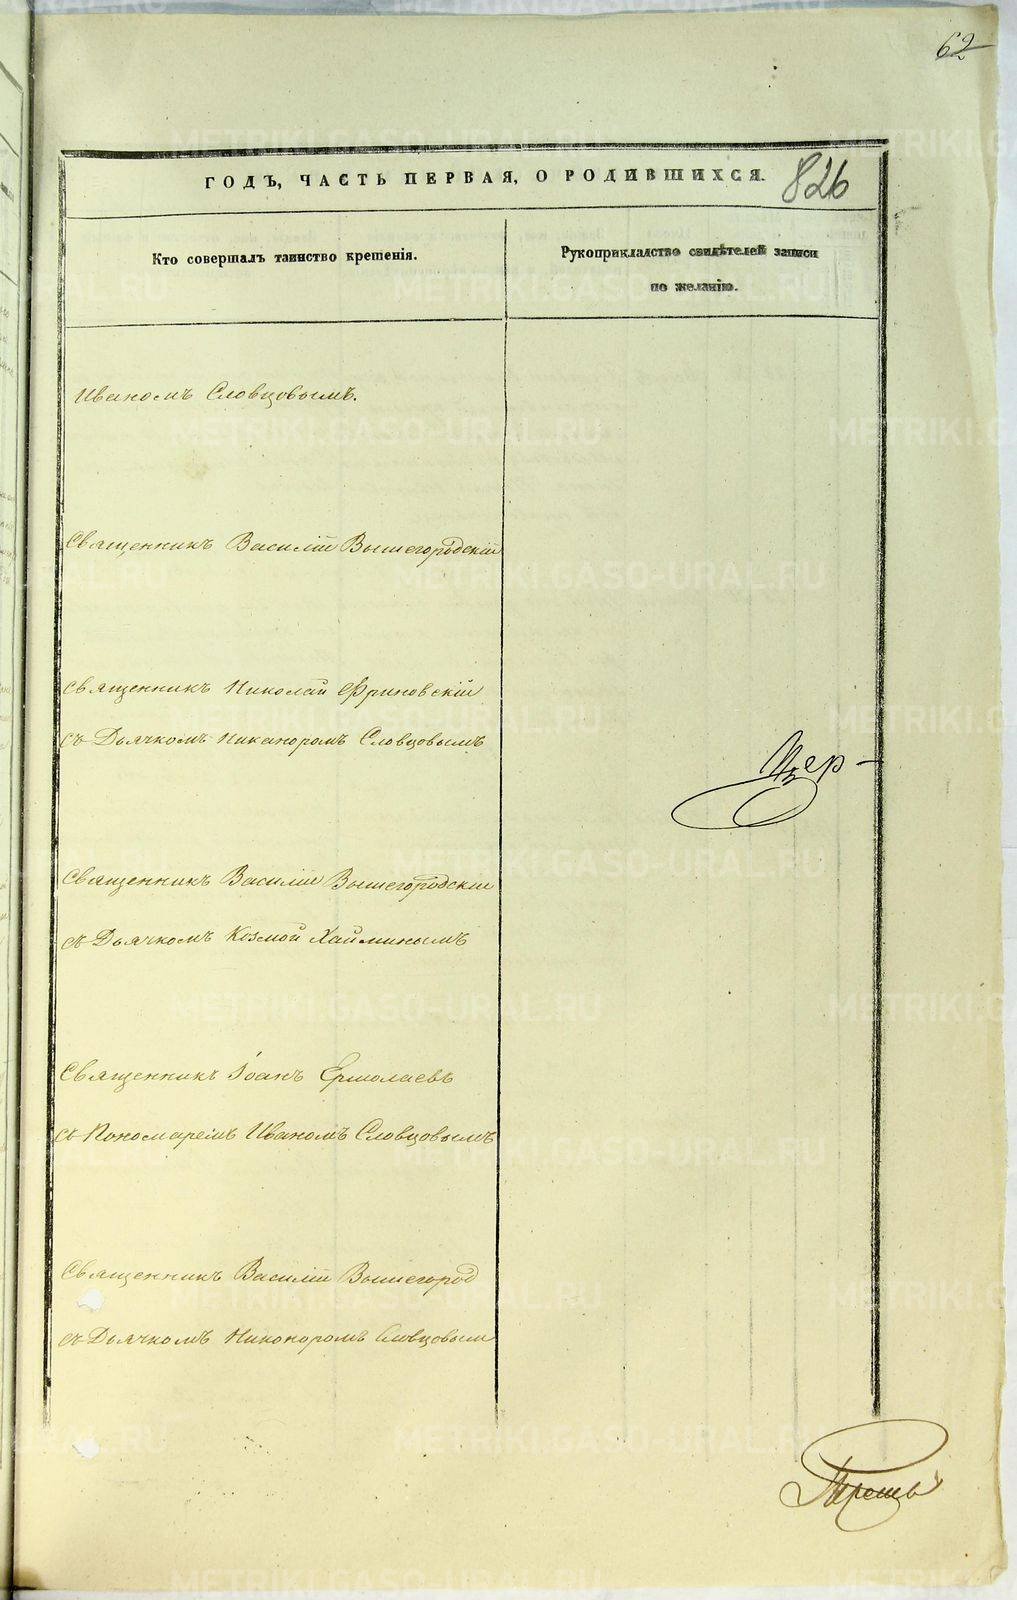 62
ГОДЪ, ЧАСТЬ ПЕРВАЯ, О РОДИВШИХСЯ.
826
Кто совершалъ таинство крещенія.
Рукоприкладство свидѣтелей записи
по желанію.
Иваномъ Словцовымъ.
Священникъ Василій Вышегородскій
Священникъ Николай Фриновскій
съ Дьячкомъ Никаноромъ Словцовымъ
Цер-
Священникъ Василій Вышегородскій
съ Дьячкомъ Козмой Хайминымъ
Священникъ Іоанъ Ермолаевъ
съ Пономаремъ Иваномъ Словцовымъ
Священникъ Василій Вышегород
съ Дьячкомъ Никоноромъ Словцовым
METRIKI.GASO-URAL.RU